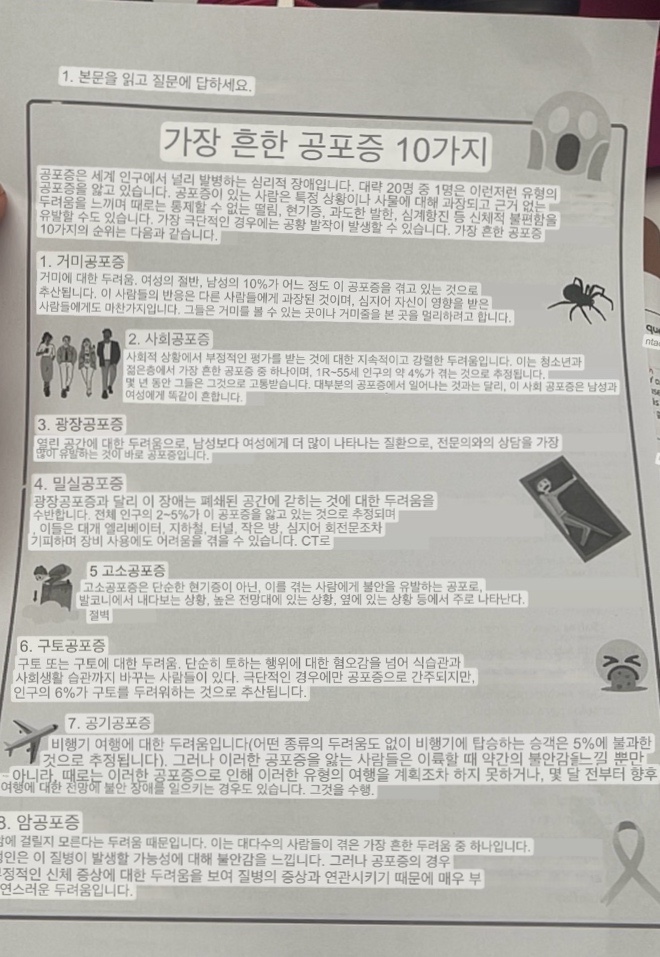 1. 본문을 읽고 질문에 답하세요.
가장 흔한 공포증 10가지
공포증은 세계 인구에서 널리 발병하는 심리적 장애입니다. 대략 20명 중 1명은 이런저런 유형의
공포증을 앓고 있습니다. 공포증이 있는 사람은 특정 상황이나 사물에 대해 과장되고 근거 없는
두려움을 느끼며 때로는 통제할 수 없는 떨림, 현기증, 과도한 발한, 심계항진 등 신체적 불편함을
유발할 수도 있습니다. 가장 극단적인 경우에는 공황 발작이 발생할 수 있습니다. 가장 흔한 공포증
10가지의 순위는 다음과 같습니다.
1. 거미공포증
거미에 대한 두려움. 여성의 절반, 남성의 10%가 어느 정도 이 공포증을 겪고 있는 것으로
추산됩니다. 이 사람들의 반응은 다른 사람들에게 과장된 것이며, 심지어 자신이 영향을 받은
사람들에게도 마찬가지입니다. 그들은 거미를 볼 수 있는 곳이나 거미줄을 본 곳을 멀리하려고 합니다.
2. 사회공포증
사회적 상황에서 부정적인 평가를 받는 것에 대한 지속적이고 강렬한 두려움입니다. 이는 청소년과
젊은층에서 가장 흔한 공포증 중 하나이며, 1R~55세 인구의 약 4%가 겪는 것으로 추정됩니다.
몇 년 동안 그들은 그것으로 고통받습니다. 대부분의 공포증에서 일어나는 것과는 달리, 이 사회 공포증은 남성과
여성에게 똑같이 흔합니다.
3. 광장공포증
열린 공간에 대한 두려움으로, 남성보다 여성에게 더 많이 나타나는 질환으로, 전문의와의 상담을 가장
많이 유발하는 것이 바로 공포증입니다.
4. 밀실공포증
광장공포증과 달리 이 장애는 폐쇄된 공간에 갇히는 것에 대한 두려움을
수반합니다. 전체 인구의 2~5%가 이 공포증을 앓고 있는 것으로 추정되며
, 이들은 대개 엘리베이터, 지하철, 터널, 작은 방, 심지어 회전문조차
기피하며 장비 사용에도 어려움을 겪을 수 있습니다. CT로
5 고소공포증
고소공포증은 단순한 현기증이 아닌, 이를 겪는 사람에게 불안을 유발하는 공포로,
발코니에서 내다보는 상황, 높은 전망대에 있는 상황, 옆에 있는 상황 등에서 주로 나타난다.
절벽
6. 구토공포증
구토 또는 구토에 대한 두려움. 단순히 토하는 행위에 대한 혐오감을 넘어 식습관과
사회생활 습관까지 바꾸는 사람들이 있다. 극단적인 경우에만 공포증으로 간주되지만,
인구의 6%가 구토를 두려워하는 것으로 추산됩니다.
7. 공기공포증
비행기 여행에 대한 두려움입니다(어떤 종류의 두려움도 없이 비행기에 탑승하는 승객은 5%에 불과한
것으로 추정됩니다). 그러나 이러한 공포증을 앓는 사람들은 이륙할 때 약간의 불안감을느낄 뿐만
아니라, 때로는 이러한 공포증으로 인해 이러한 유형의 여행을 계획조차 하지 못하거나, 몇 달 전부터 향후
여행에 대한 전망에 불안 장애를 일으키는 경우도 있습니다. 그것을 수행.
8. 암공포증
걸릴지 모른다는 두려움 때문입니다. 이는 대다수의 사람들이 겪은 가장 흔한 두려움 중 하나입니다.
이 질병이 발생할 가능성에 대해 불안감을 느낍니다. 그러나 공포증의 경우
신체 증상에 대한 두려움을 보여 질병의 증상과 연관시키기 때문에 매우 부
연스러운 두려움입니다.